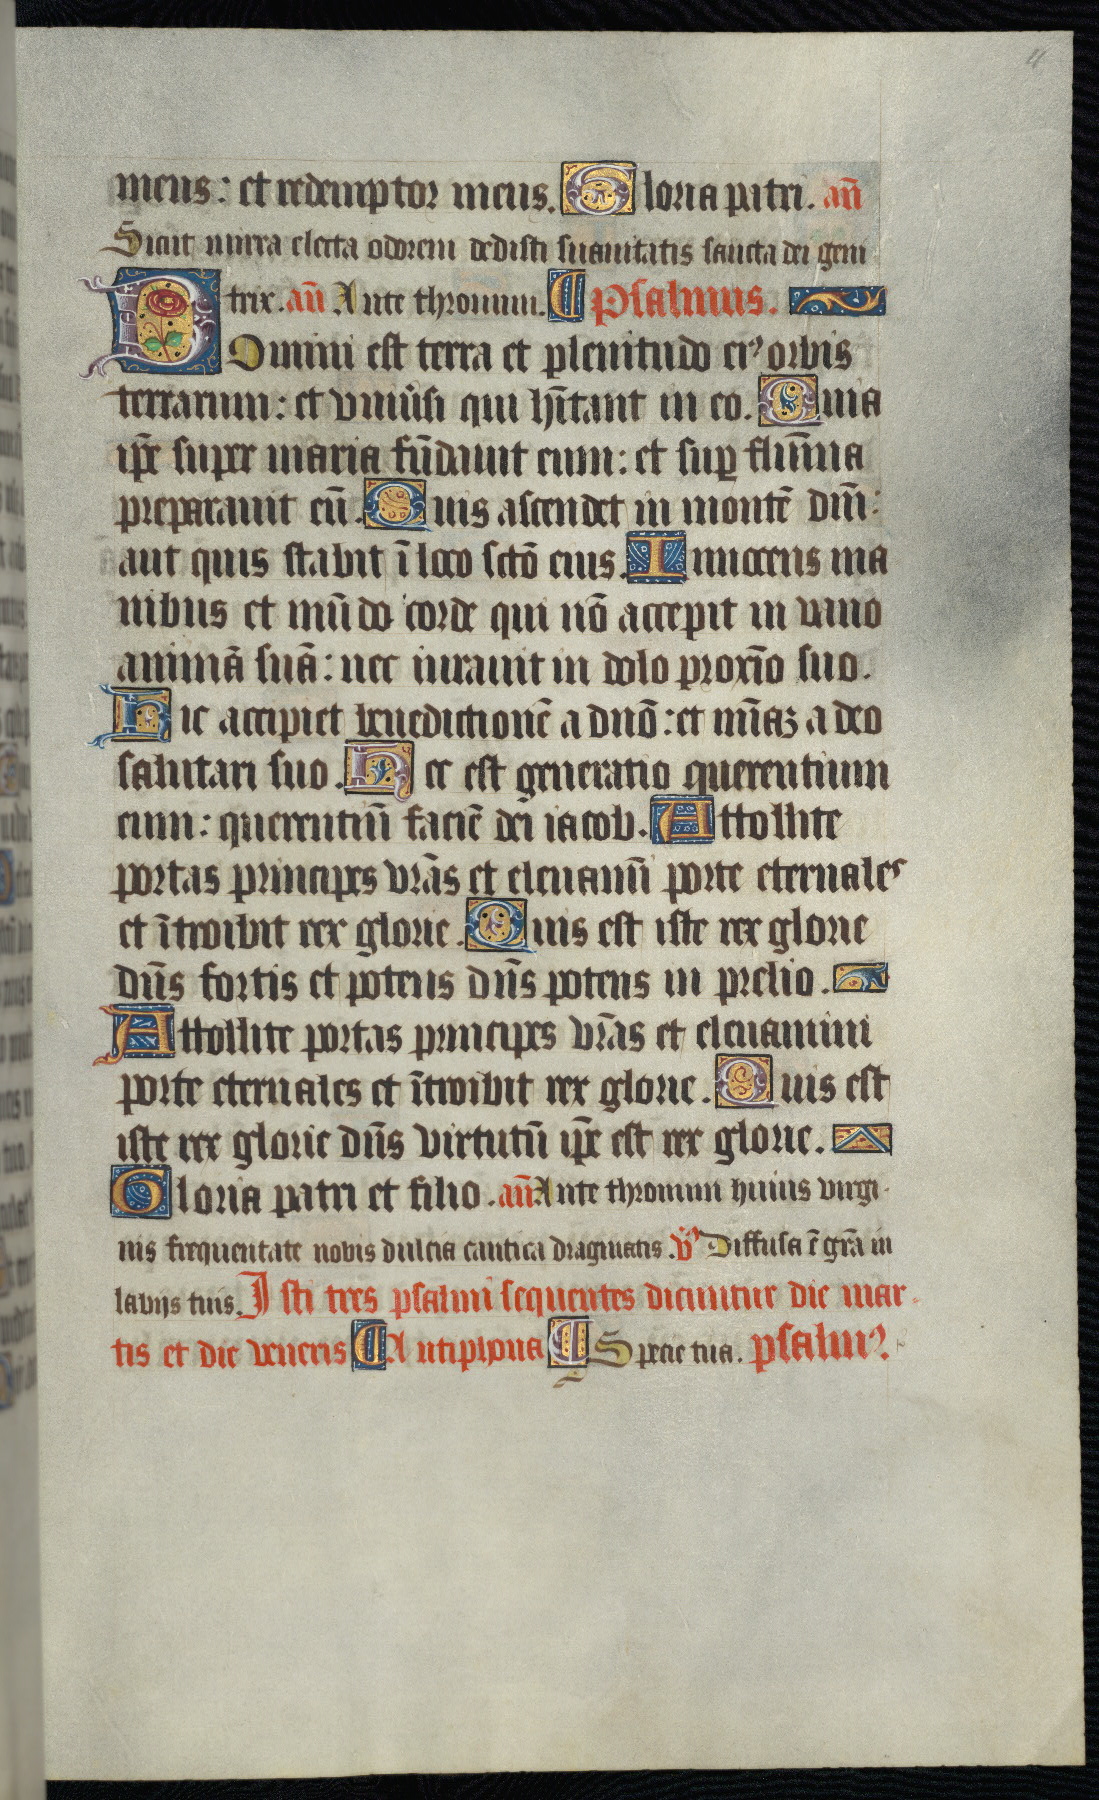 meus: et redemptor meus. Gloria patri. an̄
Sicut mirra electa odorem dedisti suauitatis sancta dei geni
trix. an̄ Ante thronum. ¶ Psalmus.
Domini est terra et plenitudo eiꝰ orbis
terrarum: et vniũsi qui hītant in eo. Quia
ip̄e super maria fūdauit eum: et suꝑ flumīa
preparauit eū. Quis ascendet in montē dn̄i:
aut quis stabit ī loco sctō eius. Innocens ma
nibus et mūdo corde qui nō accepit in vano
animā suā: nec iurauit in dolo proxīo suo.
Hic accipiet benedictionē a dnō: et mīaꝫ a deo
salutari suo. Hec est generatio querentium
eum: querentiū faciē dei iacob. Attollite
portas principes vr̄as et eleuamī porte eternales
et ītroibit rex glorie. Quis est iste rex glorie
dn̄s fortis et potens dn̄s potens in prelio.
Attollite portas principes vr̄as et eleuamini
porte eternales et ītroibit rex glorie. Quis est
iste rex glorie dn̄s virtutū ip̄e est rex glorie.
Gloria patri et filio. an̄ Ante thronum huius virgi
nis frequentate nobis dulcia cantica dragmatis. v̄ Diffusa ē gr̄a in
labijs tuis. Isti tres psalmi sequentes dicuntur die mar
tis et die veneris ¶ Antiphona ¶ Specie tua. psalmꝰ.